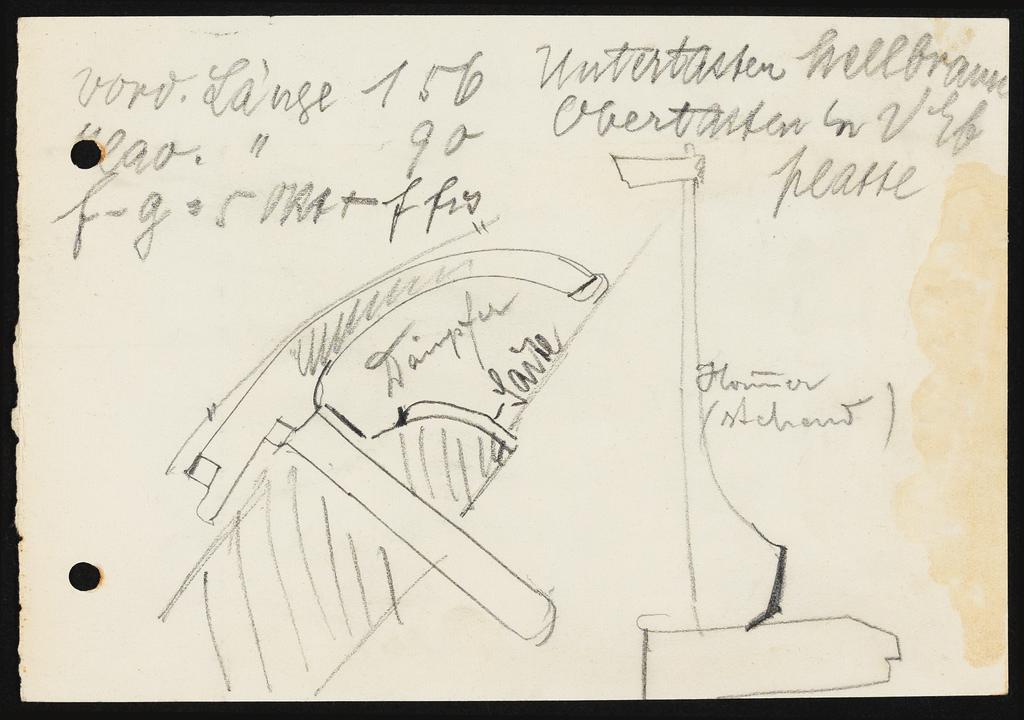 vord. Länge 156
" Lao. " 90
f-g = 5 Okt + f fis
Untertasten hellbraun
Obertasten in
platte
Dämpfer
Saite
Ham̅er
(stehend)